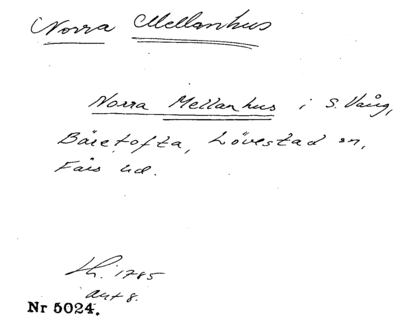 Norra Mellanhus
Norra Mellanhus i S. Vång,
Bäretofta, Lövestad sn,
Färs hd.
Lh. 1785
akt 8.
Nr 5024.